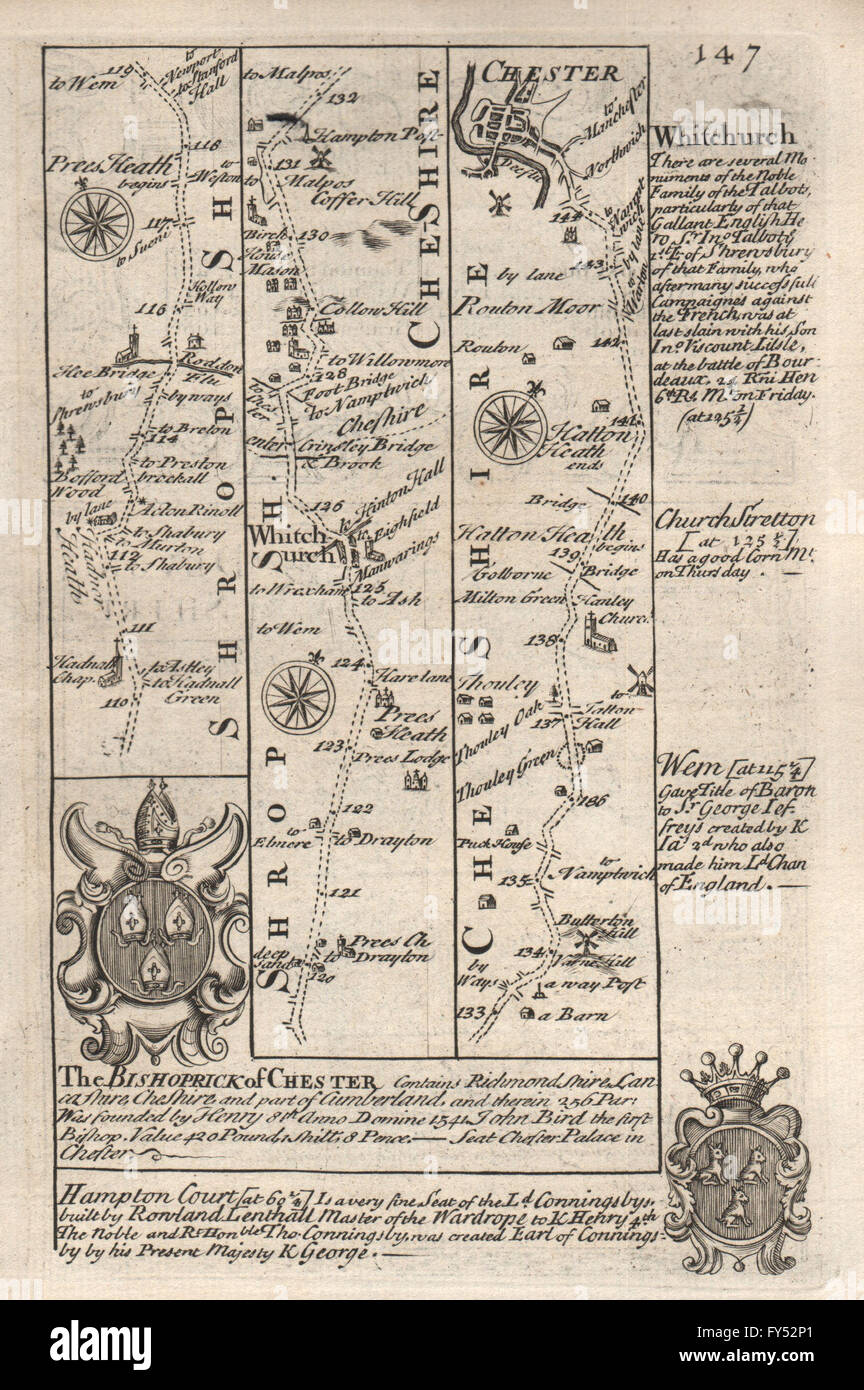 147
to Wem
119
to
Newport
to Stanford
Hall
118
Prees Heath
begins
to
Weston
117
to Sueni
Hollow
Way
116
Roddon
Flu
Hee Bridge
to
Shrewsbury
by ways
to Breton
114
to Preston
brockall
Bofford
Wood
Acton Rinoll
by lane
to Shabury
to Murton
112
to Shabury
Hadner
Heaths
111
Hadnall
Chap.
to Astley
to Hadnall
Green
110
SHROPSH
to Malpos
132
Hampton Post
131
to
Malpos
Coffer Hill
Birch
House
130
Mason
Collow Hill
to Willowmore
128
Foot Bridge
to Namptwich
to Chester
Cheshire
enter
Grinsley Bridge
& Brook
126
to Hinton Hall
Whitch
urch
to Highfield
Manwarings
to Wrexham
125
to Ash
to Wem
124
Hare lane
Prees
Heath
123
Prees Lodge
122
to
Elmere
to Drayton
121
deep
sand
Prees Ch
to
Drayton
120
SHROPSH.
CHESHIRE
CHESTER
Dee flu
to
Manchester
Northwich
144
to
Nampt
wich
by lane
143
by lane
to
Warton
Routon Moor
142
Routon
141
Hatton
Heath
ends
Bridge
140
Hatton Heath
begins
139
Golborne
Bridge
Milton Green
Hanley
Church
138
Thouley
to
Tatton
Hall
Thouley Oak
137
Thouley Green
136
Puck House
to
Namptwich
135
Butterton
Hill
134
Varne Hill
by
Ways
a way Post
133
a Barn
CHESHIRE
Whitchurch
There are several Mo
numents of the Noble
Family of the Talbots,
particularly of that
Gallant English He
ro Sr. Jno Talbot ye
1st E. of Shrewsbury
of that Family, who
after many successfull
Campaignes against
the French, was at
last slain with his Son
Jno. Viscount Lisle,
at the battle of Bour
deaux, Hen
6th Mt. on Friday.
(at 125 1/4)
Church Stretton
[at 125 1/2]
Has a good Corn Mt.
on Thursday. —
Wem [at 115 1/4]
Gave Title of Baron
to Sr. George Jef
freys created by K
Ja: 2d who also
made him Ld Chan
of England. —
The BISHOPRICK of CHESTER Contains Richmondshire, Lan
cashire, Cheshire, and part of Cumberland, and therein 256 Par:
Was founded by Henry 8th Anno Domine 1541, John Bird the first
Bishop. Value 420 Pound 1 shill: 8 Pence. — Seat Chester Palace in
Chester
Hampton Court [at 60 1/4] Is a very fine Seat of the Ld Conningsbys,
built by Rowland Lenthall Master of the Wardrope to K Henry 4th
The Noble and Rt Honble Tho: Conningsby, was created Earl of Connings
by by his Present Majesty K George. —
alamy
Image ID: FY52P1
www.alamy.com